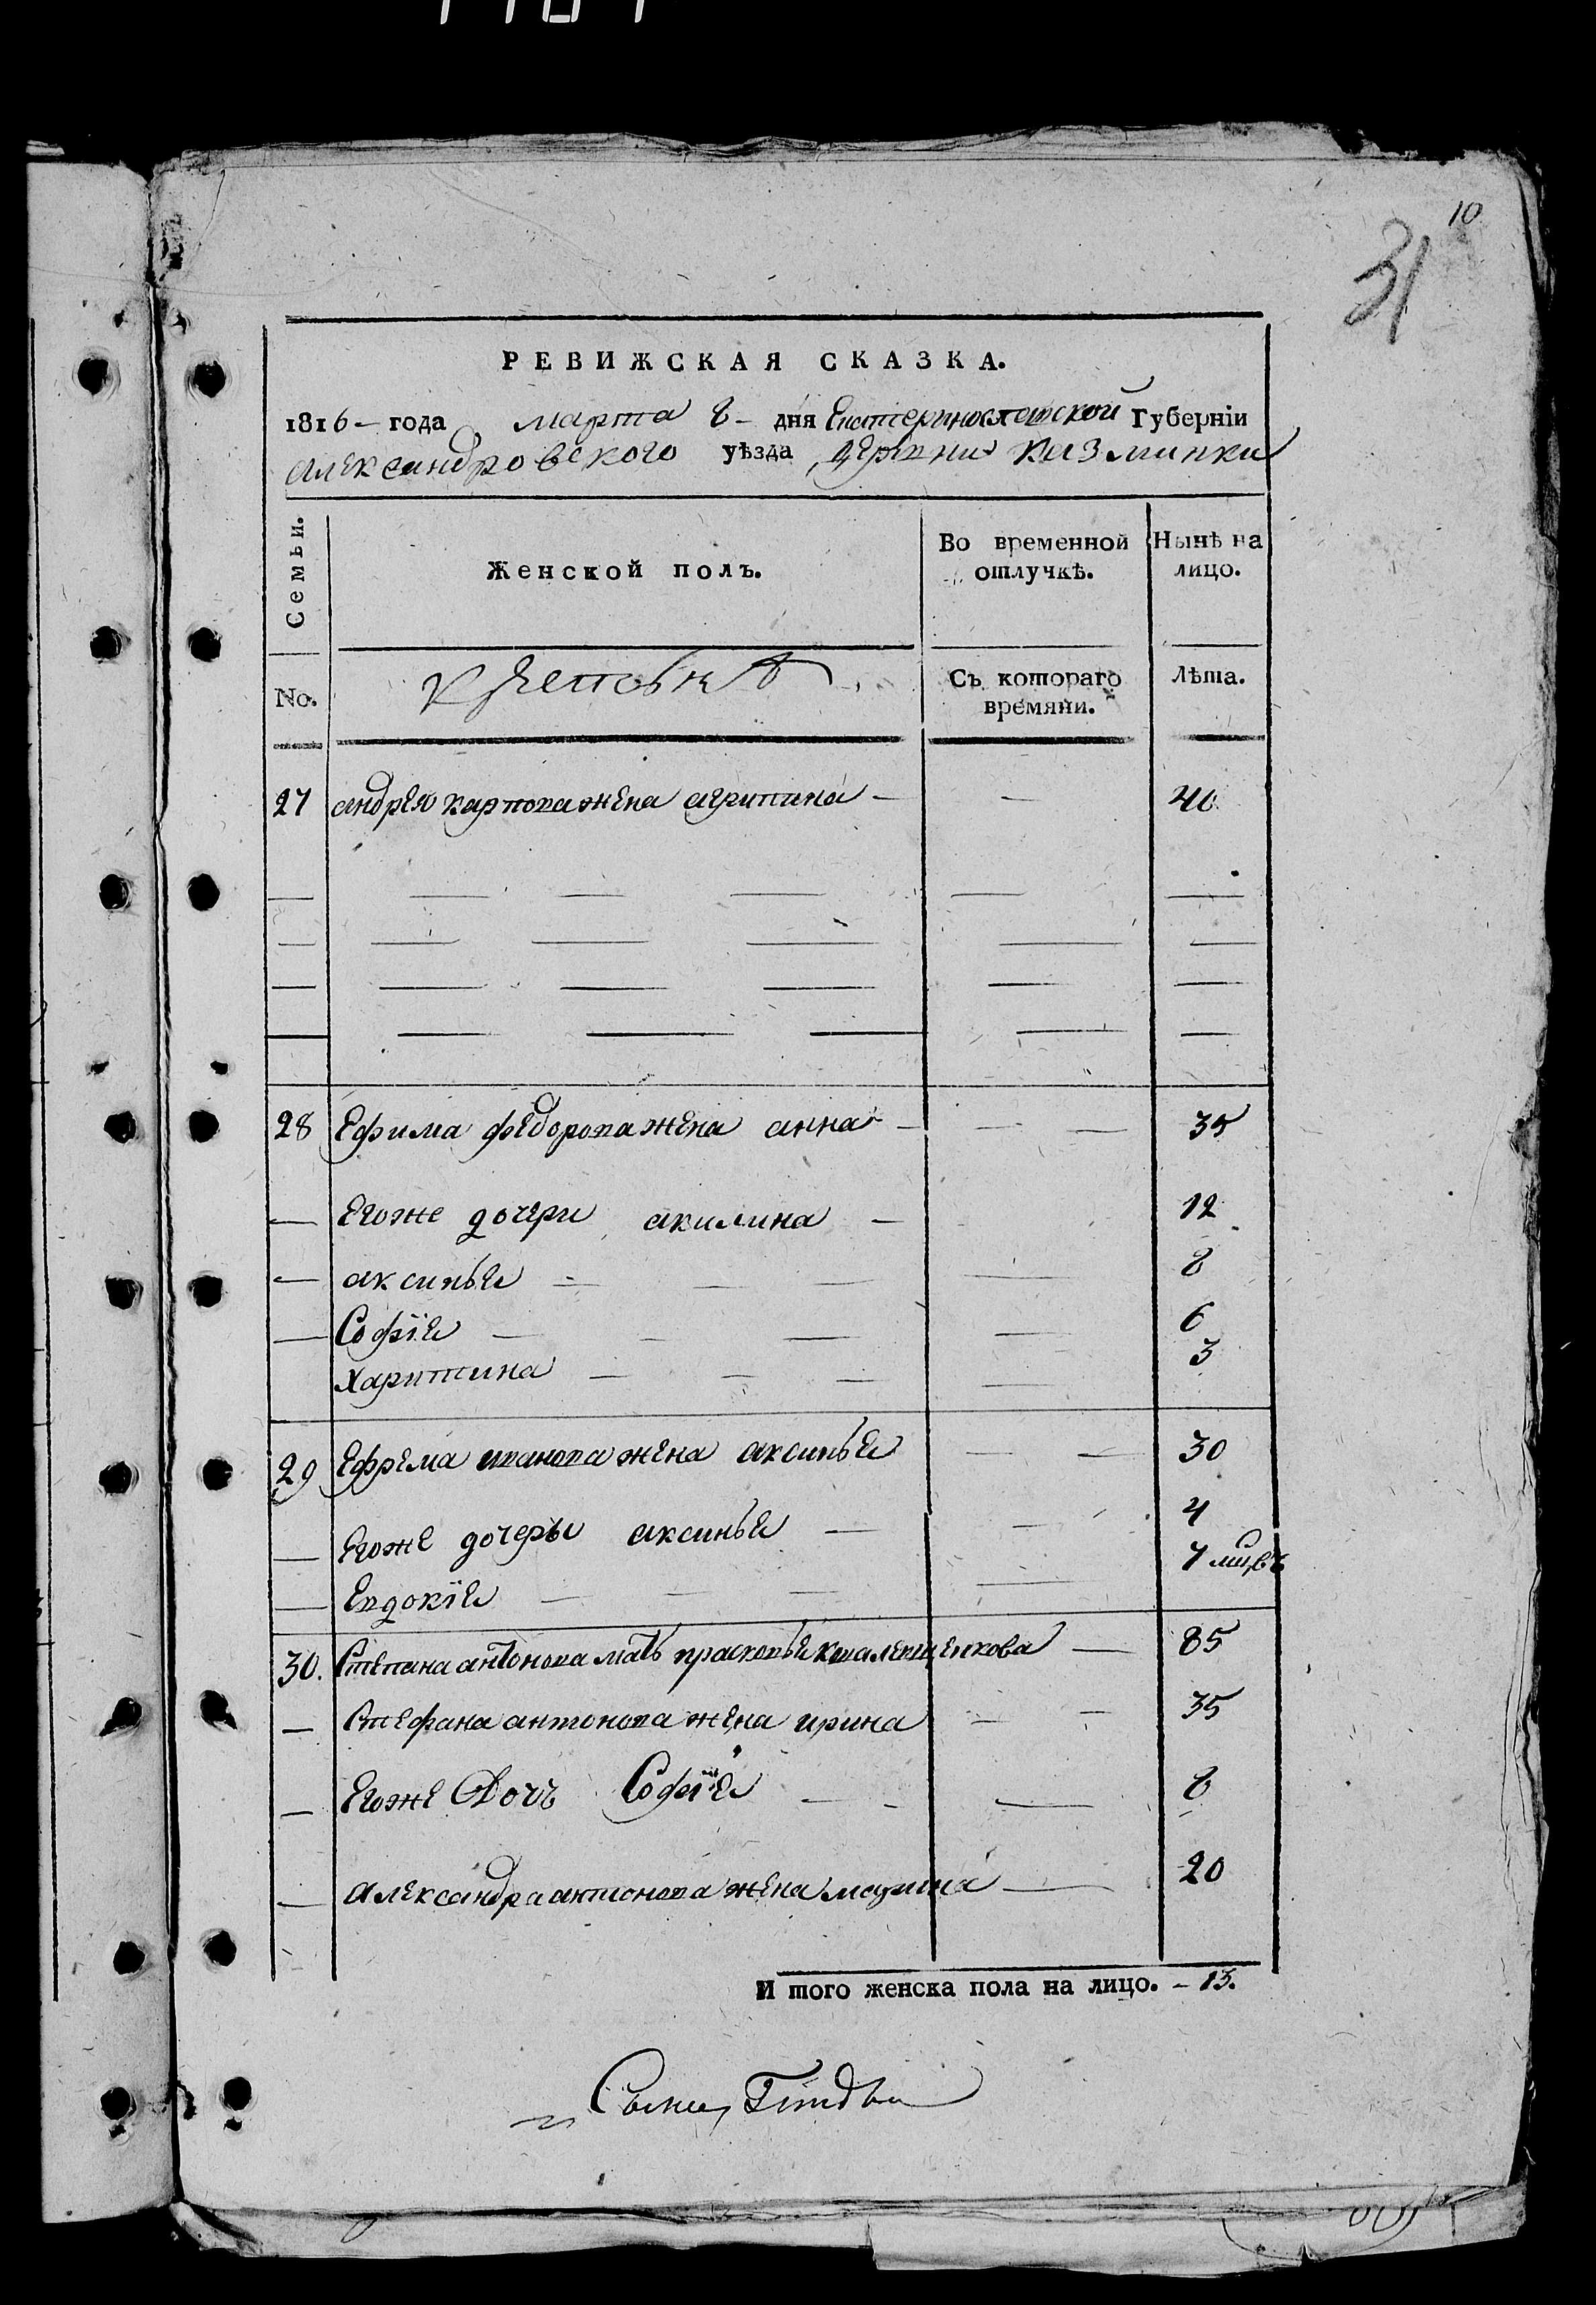 10
31
РЕВИЖСКАЯ СКАЗКА.
1816 – года марта 8 – дня Екатеринославской Губерніи
александровского уѣзда деревни Казминки
Семьи.
Женской полъ.
Во временной отлучкѣ.
Нынѣ на лицо.
No.
Съ котораго времяни.
Лѣта.
27 андрея карпова жена агрипина – – 40
28 Ефима федорова жена анна – – – 35
– Егоже дочери акилина – 12
– аксинья – – – – 8
– Софія – – – – 6
харитина – – – – 3
29 Ефрема иванова жена аксинья – – 30
– Егоже дочеры аксинья – – 4
– Евдокія – – – –
30. Степана антонова мать прасковья – 85
– Стефана антонова жена ирина – – 35
– Егоже Дочь Софія – – – 8
– александра антонова жена марина – 20
И того женска пола на лицо. – 13.